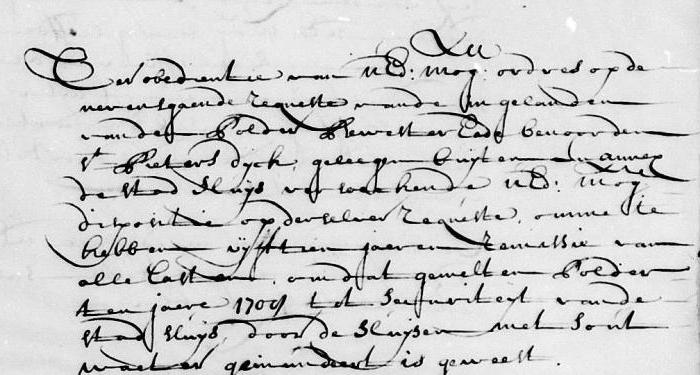 Ter obedientie van UEd: mog: ordres op de
nevensgaende requeste vande Ingelanden
vanden Polder Bewester Eede benoorden
St Pieters Dyck, geleegen buyten en annex
de Stad Sluys versoekende UEd: Mog:
dispositie op derselver requeste, omme te
hebben vyfftien jaeren remissie van
alle lasten, omdat gemelten Polder
ten jaere 1709 tot securiteyt vande
Stad Sluys, door de Sluysen met sout
water geinundeert is geweest.